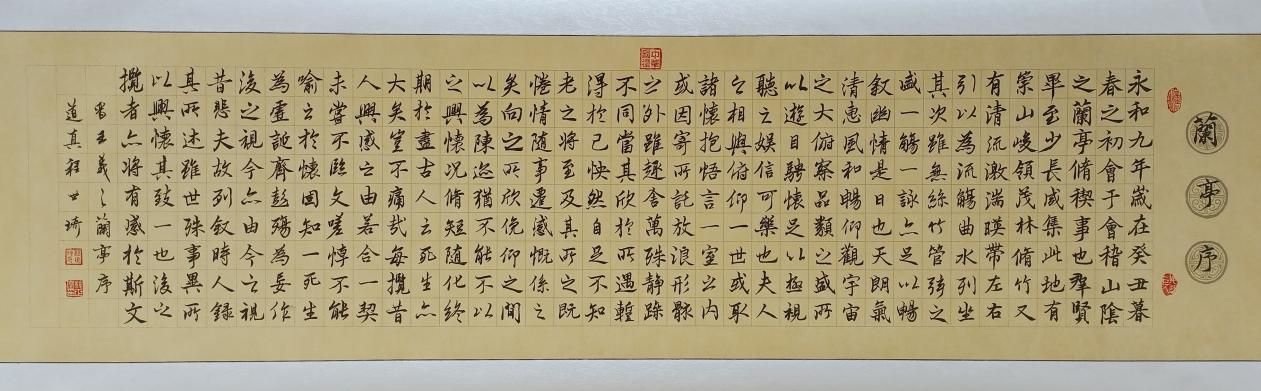 蘭亭序
永和九年歲在癸丑暮
春之初會于會稽山陰
之蘭亭脩稧事也羣賢
畢至少長咸集此地有
崇山峻領茂林脩竹又
有清流激湍暎帶左右
引以為流觴曲水列坐
其次雖無絲竹管弦之
盛一觴一詠亦足以暢
敘幽情是日也天朗氣
清惠風和暢仰觀宇宙
之大俯察品類之盛所
以遊目騁懷足以極視
聽之娛信可樂也夫人
之相與俯仰一世或取
諸懷抱悟言一室之內
或因寄所託放浪形骸
之外雖趣舍萬殊靜躁
不同當其欣於所遇蹔
得於己怏然自足不知
老之將至及其所之既
惓情隨事遷感慨係之
矣向之所欣俛仰之間
以為陳迹猶不能不以
之興懷況脩短隨化終
期於盡古人云死生亦
大矣豈不痛哉每攬昔
人興感之由若合一契
未嘗不臨文嗟悼不能
喻之於懷固知一死生
為虛誕齊彭殤為妄作
後之視今亦由今之視
昔悲夫故列敘時人錄
其所述雖世殊事異所
以興懷其致一也後之
攬者亦將有感於斯文
書王羲之蘭亭序
道真程世琦